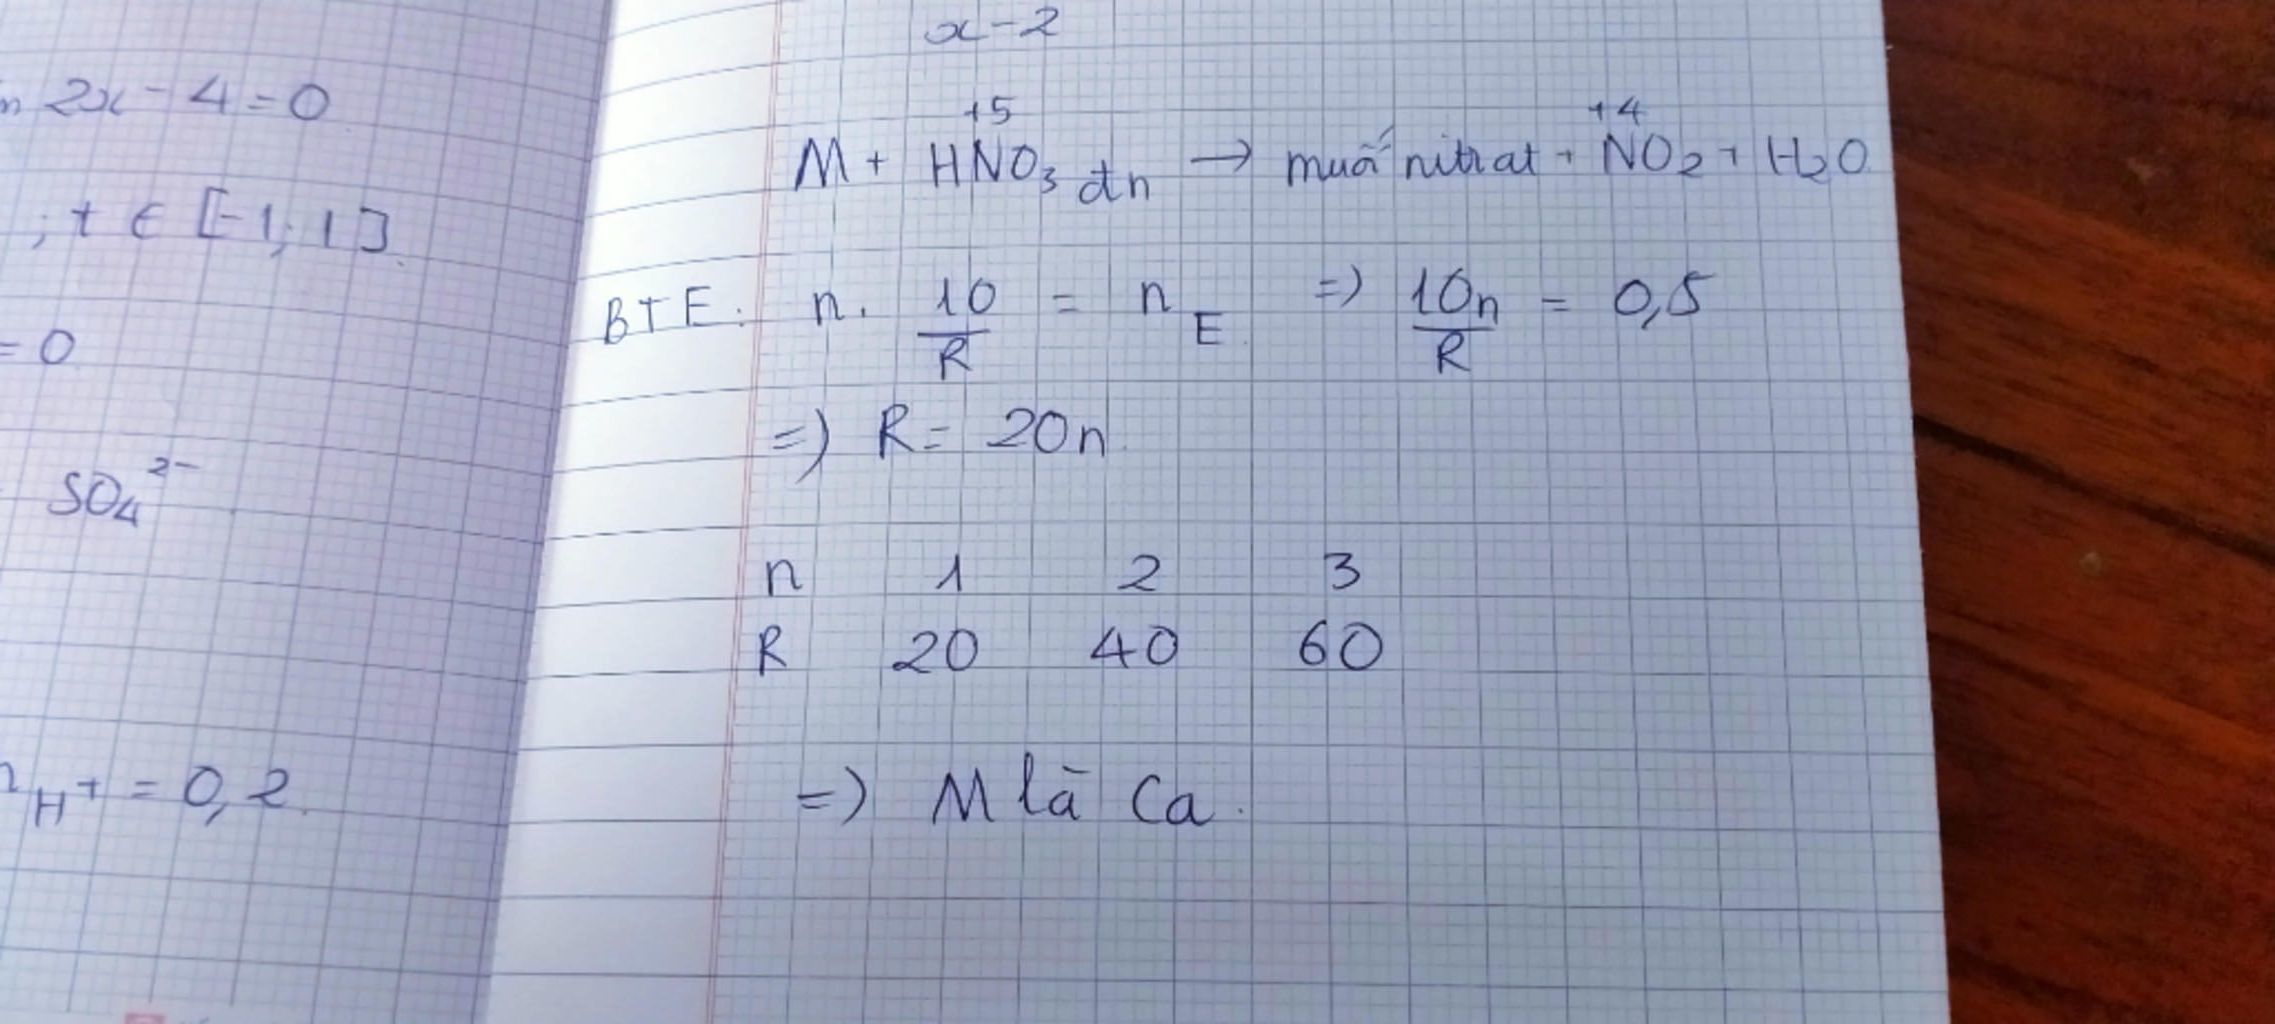 2x - 4 = 0
; t ∈ [-1; 1]
= 0
SO₄²⁻
H⁺ = 0,2
x - 2
+5 +4
M + HNO₃ dn → muối nitrat + NO₂ + H₂O
BTE: n. 10/R = n E => 10n/R = 0,5
=> R = 20n
n 1 2 3
R 20 40 60
=> M là Ca.